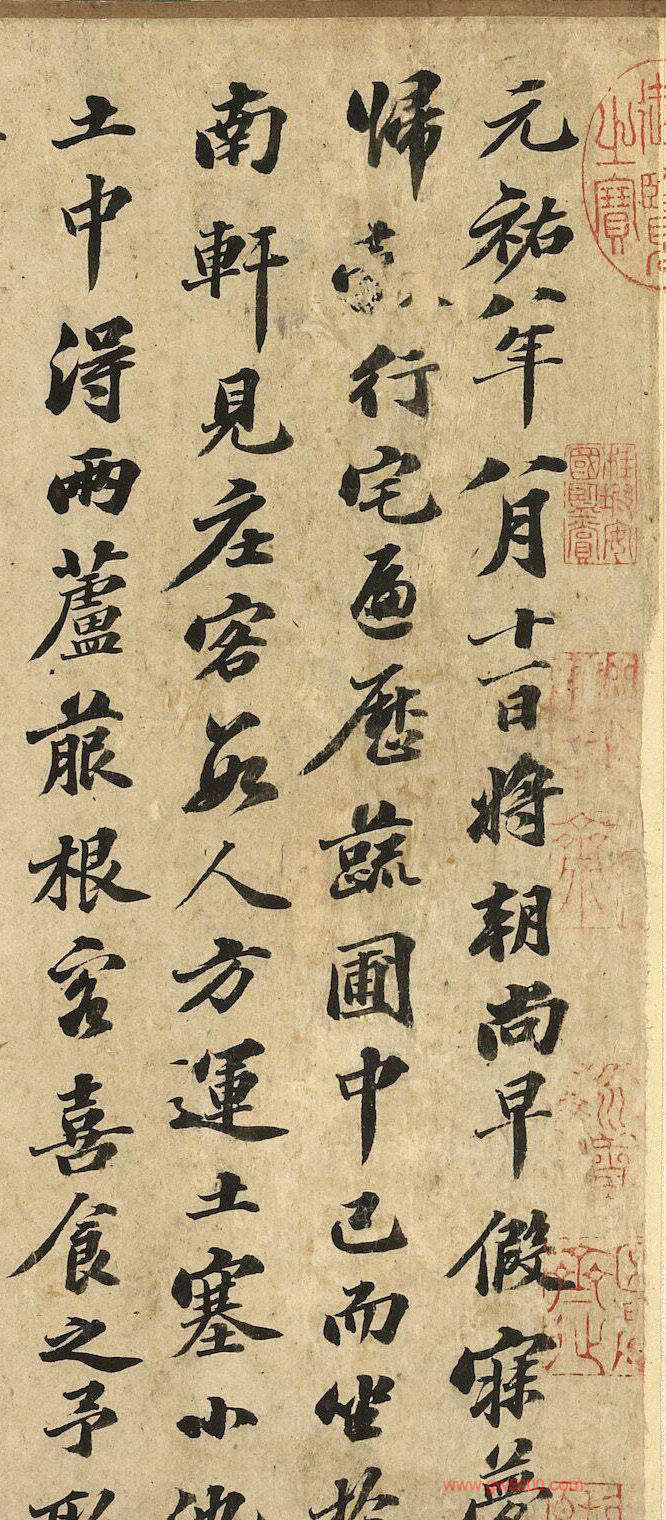 元祐八年八月十一日將朝尚早假寐夢
歸縠行宅遍歷蔬圃中已而坐於
南軒見庄客數人方運土塞小池
土中得兩蘆菔根客喜食之予取
御覽之寶
www.yw5000.com